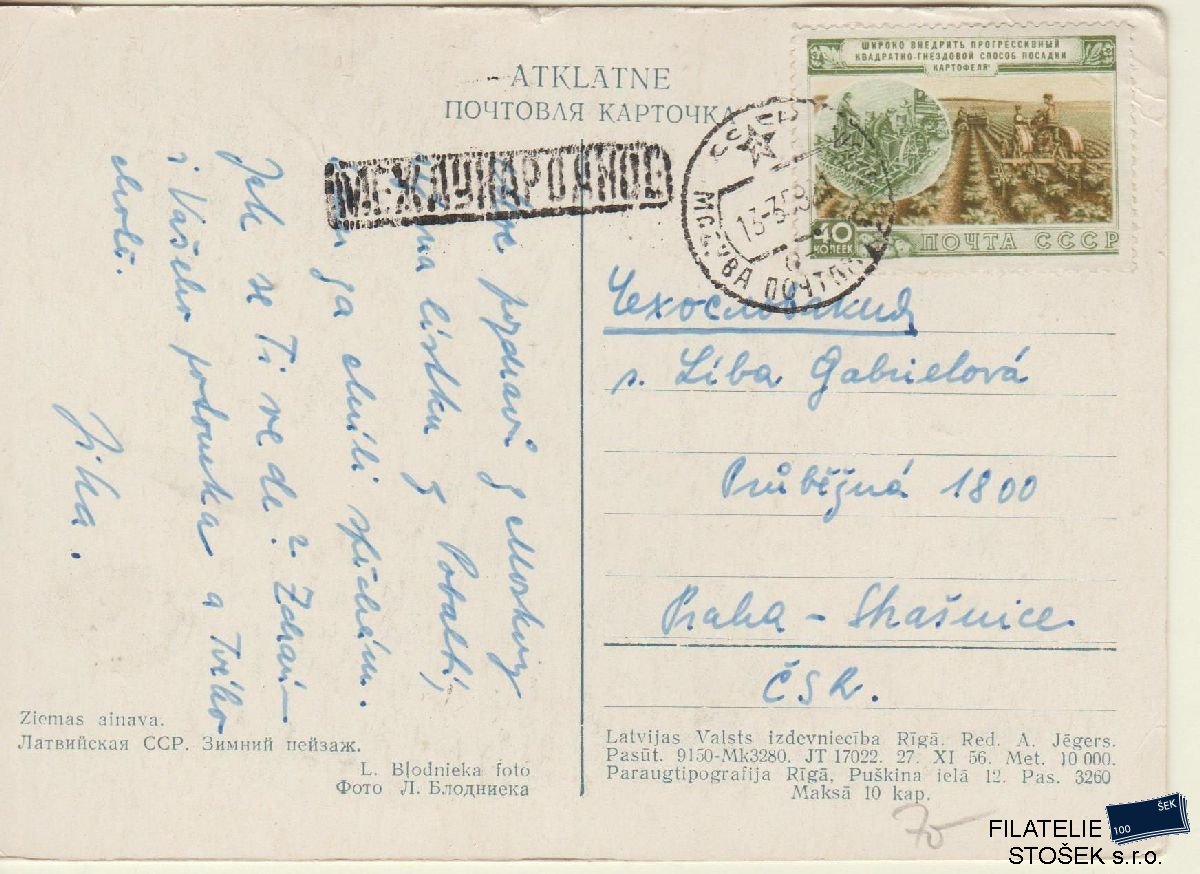 ATKLĀTNE
ПОЧТОВАЯ КАРТОЧКА
ШИРОКО ВНЕДРИТЬ ПРОГРЕССИВНЫЙ
КВАДРАТНО-ГНЕЗДОВОЙ СПОСОБ ПОСАДКИ
КАРТОФЕЛЯ
40
КОПЕЕК
ПОЧТА СССР
СССР
13-3 58
МОСКВА ПОЧТАМТ
МЕЖДУНАРОДНОЕ
pozdravů z Moskvy
na lístku z Pobaltí,
ga chvíli spíchám.
Jak se Ti vede? Zdraví
i Vašeho potomka a Tvého
chotě.
Jirka.
Чехословакия
s. Líba Gabrielová
Průběžná 1800
Praha - Strašnice
ČSR.
Ziemas ainava.
Латвийская ССР. Зимний пейзаж.
L. Bļodnieka foto
Фото Л. Блодниека
Latvijas Valsts izdevniecība Rīgā. Red. A. Jēgers.
Pasūt. 9150-Mk3280. JT 17022. 27. XI 56. Met. 10 000.
Paraugtipografija Rīgā, Puškina ielā 12. Pas. 3260
Maksā 10 kap.
70
FILATELIE
STOŠEK s.r.o.
100 ŠEK